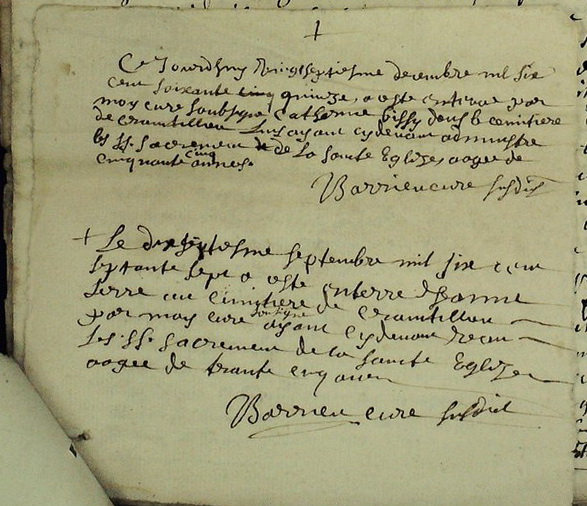 +
Ce Jourdhuy Vingt septiesme decembre mil six
cent soixante cinq quinze, a este enterré par
moy cure soubsigné Catherine dans le cemitiere
de Cramtillou luy ayant cydevant administre
les SS. Sacrement de la Sainte Eglize, aagee de
cinquante cinq annees
Barrieu cure susdit
+ Le dixseptiesme septembre mil six cent
septante sept a este enterre Jeanne
Serre au cimitiere de Cramtillou
par moy cure soubsigné ayant cydevant receu
les SS. Sacrement de la Saincte Eglize
aagee de trante cinq annee
Barrieu cure susdit